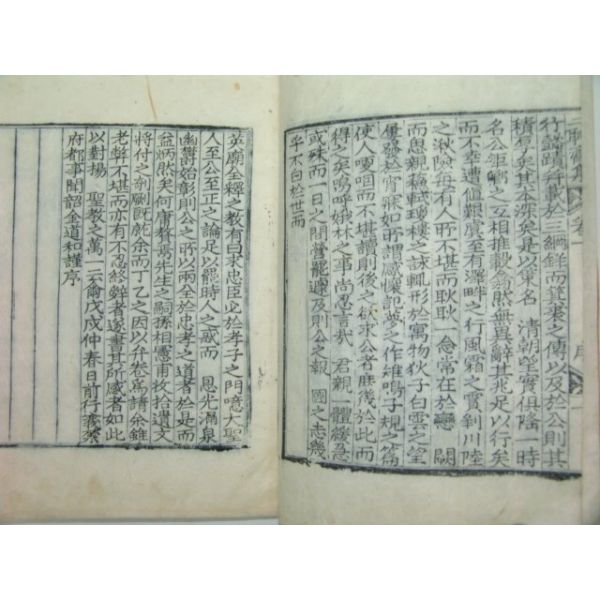 行誼蹟幷載於三綱錄而箕裘之傳以及於公則其
積累矣其本深矣是以集名 清朝望實俱隆一時
名公鉅卿之互相推轂翕然無異辭其兆足以行矣
而不幸遭値艱虞至有澤畔之行風霜之實到川陸
之湫險每有人所不堪而耿耿一念常在於 闕
而思親藹軾瓊樓之詠輒形於寓物狄子白雲之望
屢發於宵寐如所謂感懷記夢之作雉鳴子規之篇
使人哽咽而不堪讀則後之欲求公者庶後於此而
得之矣嗚呼娥林之事尚忍言哉 君親一體緩急
或殊而一日之間營罷遽及則公之報 國之志幾
乎不白於世而
英廟全釋之敎有曰求忠臣必於孝子之門噫大聖
人至公至正之論足以罷時人之惑而 恩光漏泉
幽鬱始彰則公之所以兩全於忠孝之道者於是而
益炳然矣何庸發焉先生之嗣孫相憲甫收拾遺文
將付之剞劂旣就余而丁乙之因以弁卷爲請余雖
老弊不堪而亦有不忍終辭者遂書其所感者如此
以對揚 聖敎之萬一云爾戊戌仲春日前行義禁
府都事聞韶金道和謹序